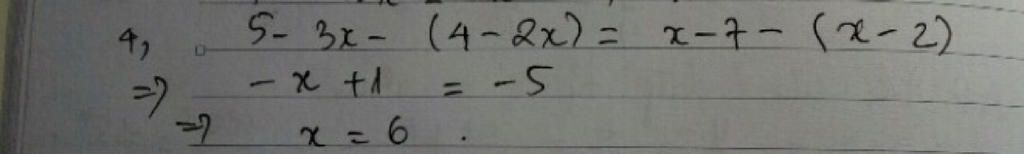 4, 5 - 3x - (4 - 2x) = x - 7 - (x - 2)
=> - x + 1 = - 5
=> x = 6 .